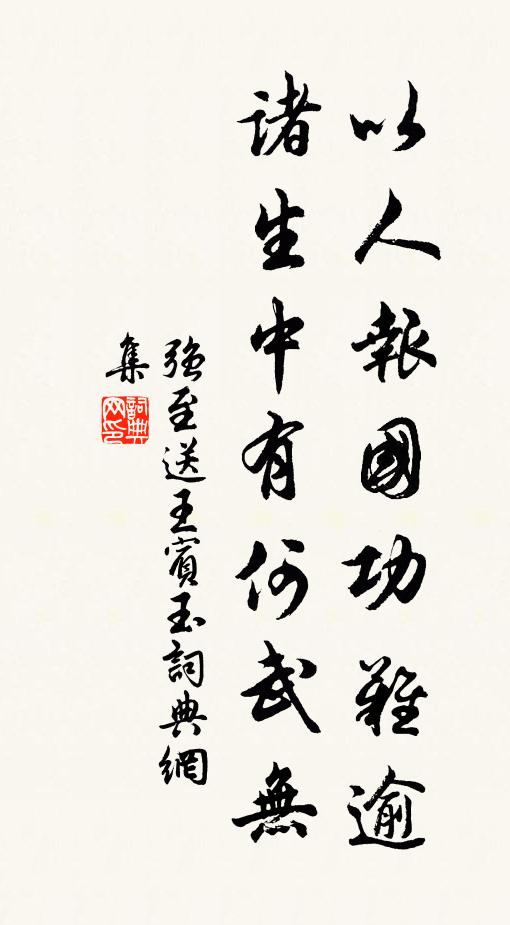 以人報國功難逾
諸生中有何武無
强至送王賓玉詞典網
集
詞典网印